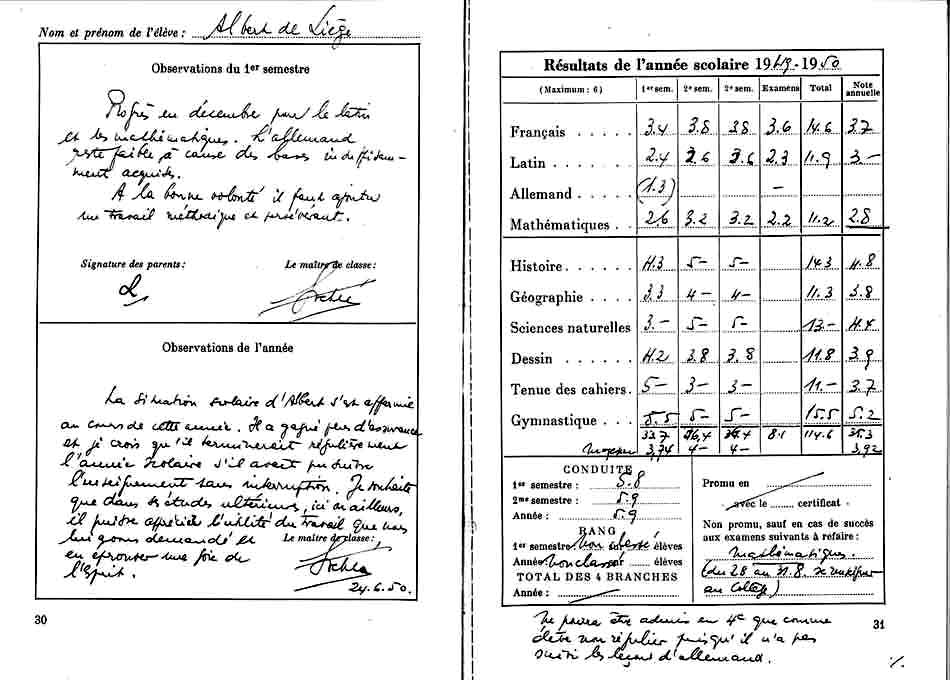 Nom et prénom de l'élève : Albert de Liège
Observations du 1er semestre
Progrès en décembre pour le latin
et les mathématiques. L'allemand
reste faible, à cause des bases insuffisam-
ment acquises.
A la bonne volonté il faut ajouter
un travail méthodique et persévérant.
Signature des parents :
Le maître de classe :
L
Observations de l'année
La situation scolaire d'Albert s'est affermie
au cours de cette année. Il a gagné plus d'assurance
et je crois qu'il terminerait régulièrement
l'année scolaire s'il avait pu suivre
l'enseignement sans interruption. Je souhaite
que dans ses études ultérieures, ici ou ailleurs,
il puisse apprécier l'utilité du travail que nous
lui avons demandé et
en éprouver une joie de
l'Esprit.
Le maître de classe :
24.6.50.
30
Résultats de l'année scolaire 1949-1950
(Maximum : 6) 1er sem. 2e sem. 2e sem. Examens Total Note annuelle
Français . . . . . 3.4 3.8 3.8 3.6 14.6 3.7
Latin . . . . . . 2.4 3.6 3.6 2.3 11.9 3—
Allemand . . . . . (1.3) —
Mathématiques . . 2.6 3.2 3.2 2.2 11.2 2.8
Histoire . . . . . . 4.3 5— 5— 14.3 4.8
Géographie . . . . 3.3 4— 4— 11.3 3.8
Sciences naturelles 3.— 5— 5— 13.— 4.4
Dessin . . . . . . 4.2 3.8 3.8 11.8 3.9
Tenue des cahiers . 5— 3— 3— 11.— 3.7
Gymnastique . . . . 5.5 5— 5— 15.5 5.2
33.7 36,4 36.4 8.1 114.6
3,74 4— 4— 3,92
CONDUITE
1er semestre : 5.8
2me semestre : 5.9
Année : 5.9
RANG
1er semestre non classé sur élèves
Année non classé sur élèves
TOTAL DES 4 BRANCHES
Année :
Promu en
avec le certificat
Non promu, sauf en cas de succès
aux examens suivants à refaire :
Mathématiques.
(du 28 au 31.8. se renseigner
au Collège)
Ne pourra être admis en 4e que comme
élève non régulier puisqu'il n'a pas
suivi les leçons d'allemand.
31